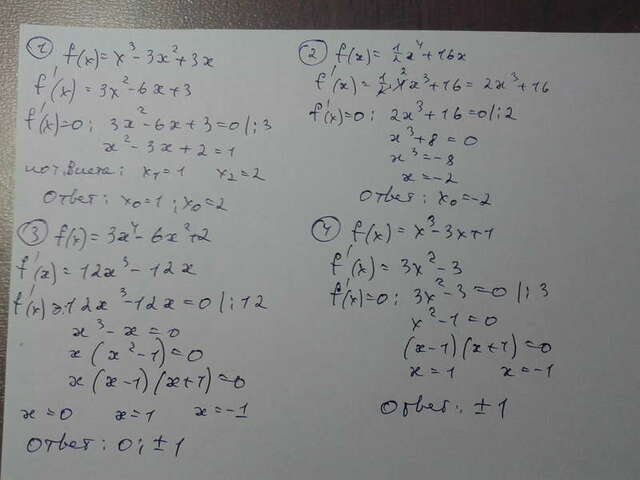 ① f(x) = x³ - 3x² + 3x
f'(x) = 3x² - 6x + 3
f'(x)=0; 3x² - 6x + 3 = 0 |:3
x² - 3x + 2 = 1
по т. Виета: x₁ = 1 x₂ = 2
Ответ: x₀ = 1; x₀ = 2
② f(x) = 1/2 x⁴ + 16x
f'(x) = 1/2 · 4x³ + 16 = 2x³ + 16
f'(x)=0; 2x³ + 16 = 0 |:2
x³ + 8 = 0
x³ = -8
x = -2
Ответ: x₀ = -2
③ f(x) = 3x⁴ - 6x² + 2
f'(x) = 12x³ - 12x
f'(x)=0; 12x³ - 12x = 0 |:12
x³ - x = 0
x(x² - 1) = 0
x(x-1)(x+1) = 0
x = 0 x = 1 x = -1
Ответ: 0; ±1
④ f(x) = x³ - 3x + 1
f'(x) = 3x² - 3
f'(x)=0; 3x² - 3 = 0 |:3
x² - 1 = 0
(x-1)(x+1) = 0
x = 1 x = -1
Ответ: ±1